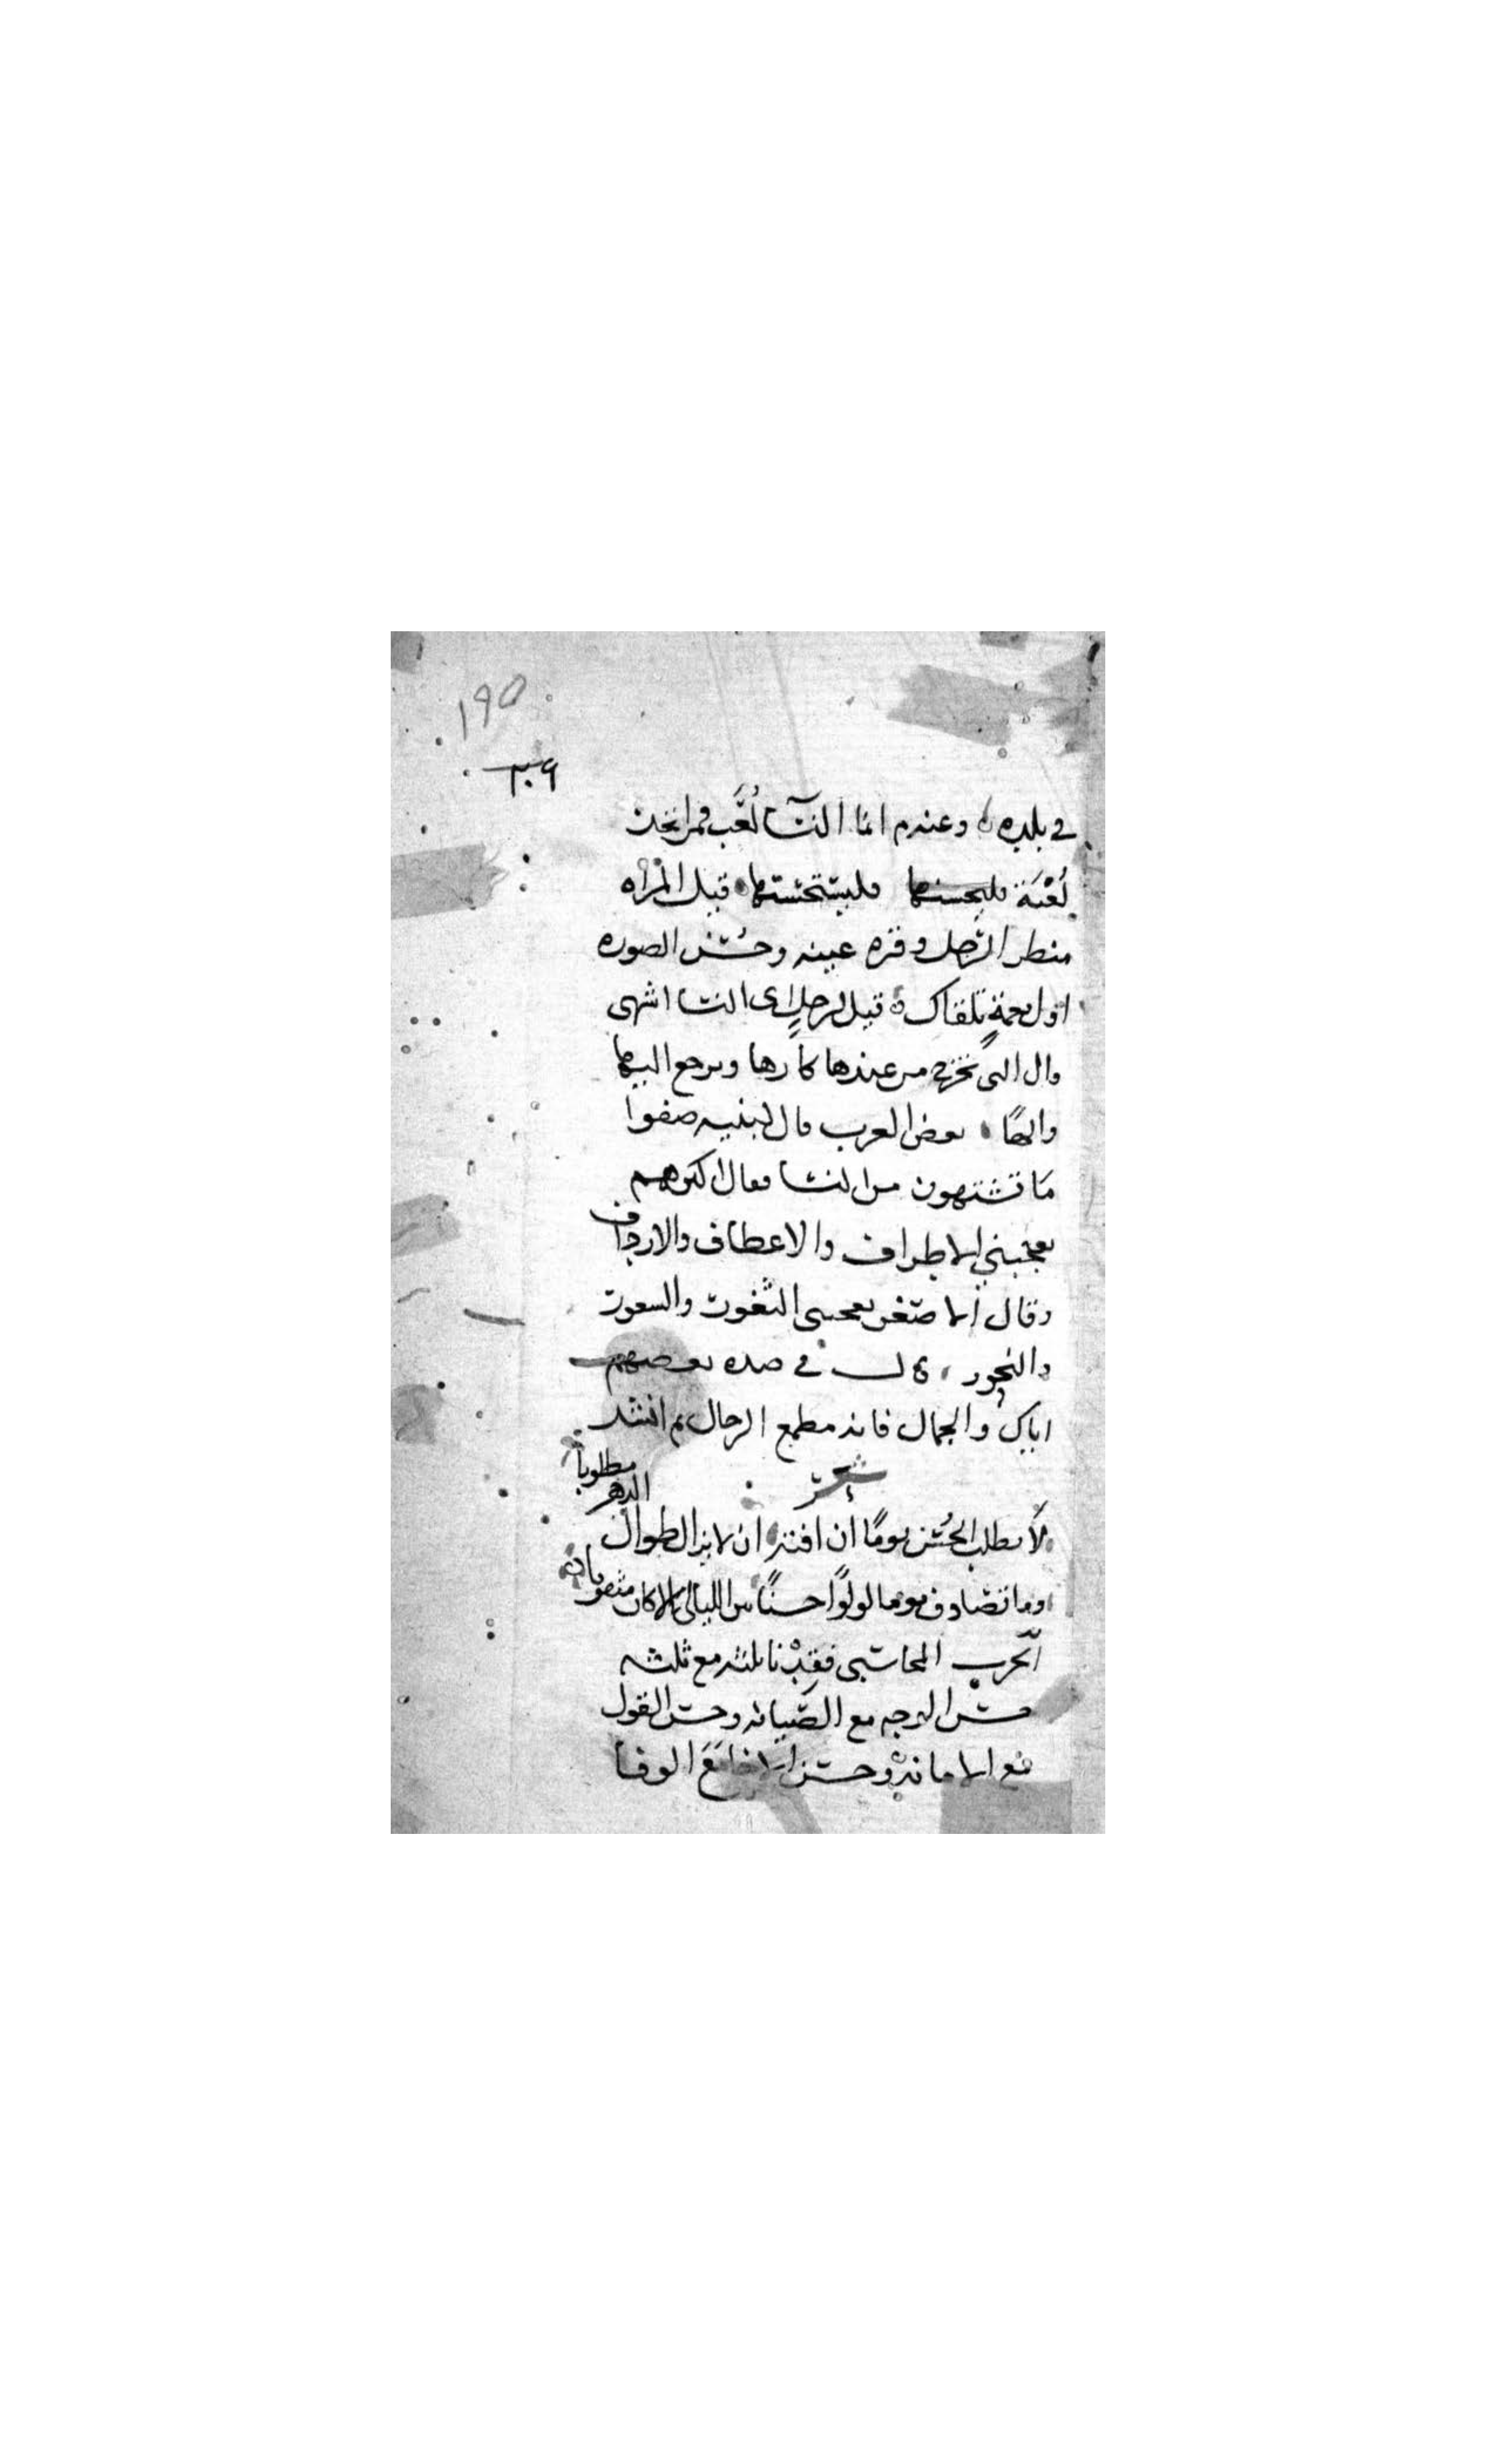 ١٩٥
٢٠٦
في بلده وعنهم انما النسا لعب فمن اتخذ
لعبة فليحسنها فليستحسنها قيل المراه
منظر الرجل وقره عينه وحسن الصوره
اول نعمة تلقاك قيل لرجل اى النسا اشهى
قال التى تخرج من عندها كارها وترجع اليها
والها بعض العرب قال لبنيه صفوا
ما تشتهون من النسا فقال اكبرهم
يعجبني الاطراف والاعطاف والارداف
وقال الاصغر يعجبنى الثغور والشعور
والنحور قالت في صده بعضهم
اياك والجمال فانه مطمع الرجال ثم انشد
شعر
لا تطلب الحسن يوما ان افته ان لا يزال طوال الدهر مطلوبا
وما تصادف يوما لولوا حسنا من الليالي الا كان مثقوبا
الحرب المحاسبى فقدنا ثلثه مع ثلثه
حسن الوجه مع الصيانه وحسن القول
مع الامانه وحسن الاخا مع الوفا